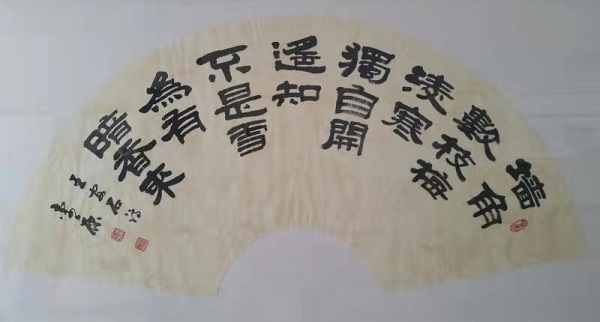 墙角
數枝梅
凌寒
獨自開
遥知
不是雪
為有
暗香来
王安石诗